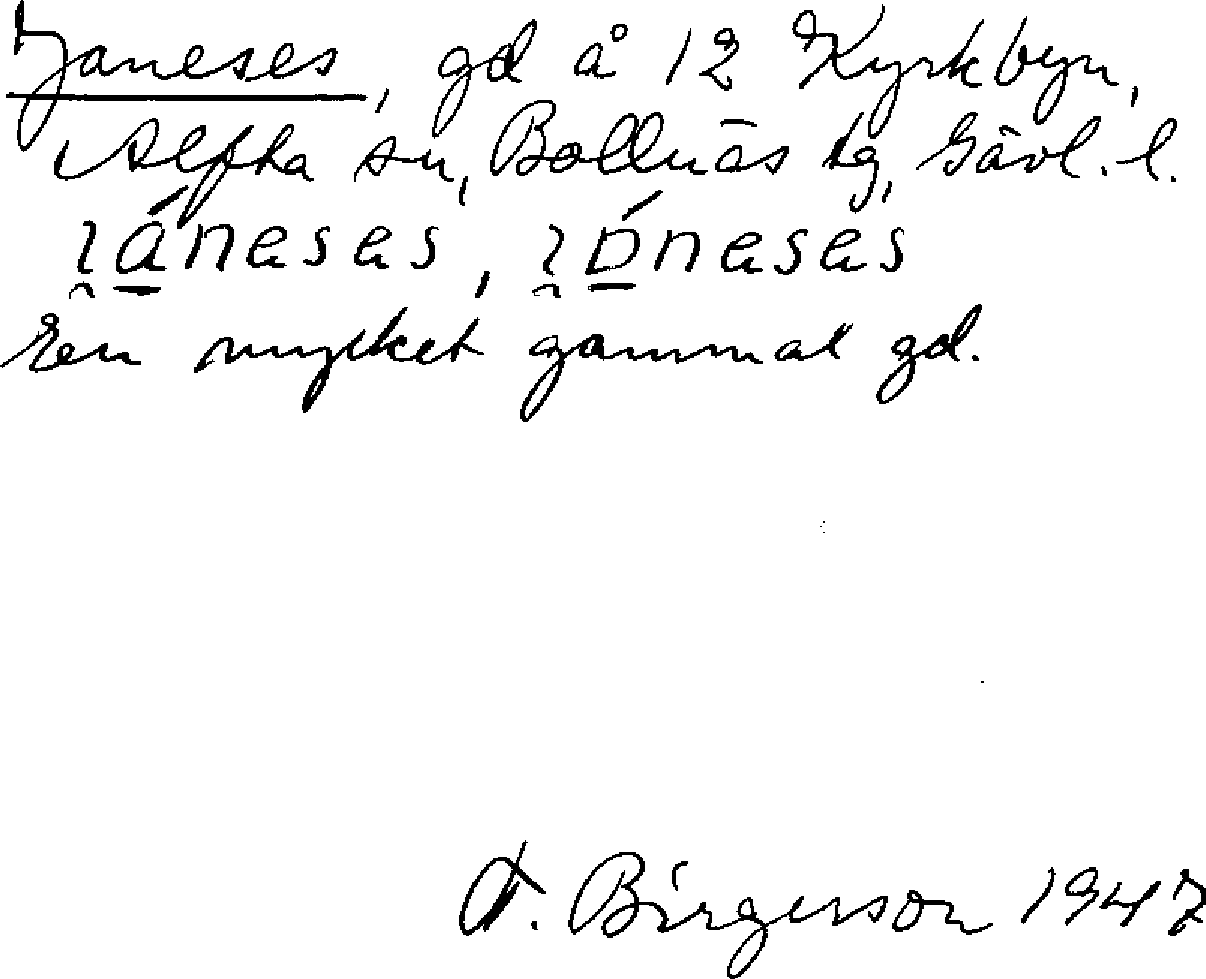 Janeses, gd å 12 Kyrkbyn,
Alfta sn, Bollnäs tg, Gävl. l.
En mycket gammal gd.
Birgerson 1947